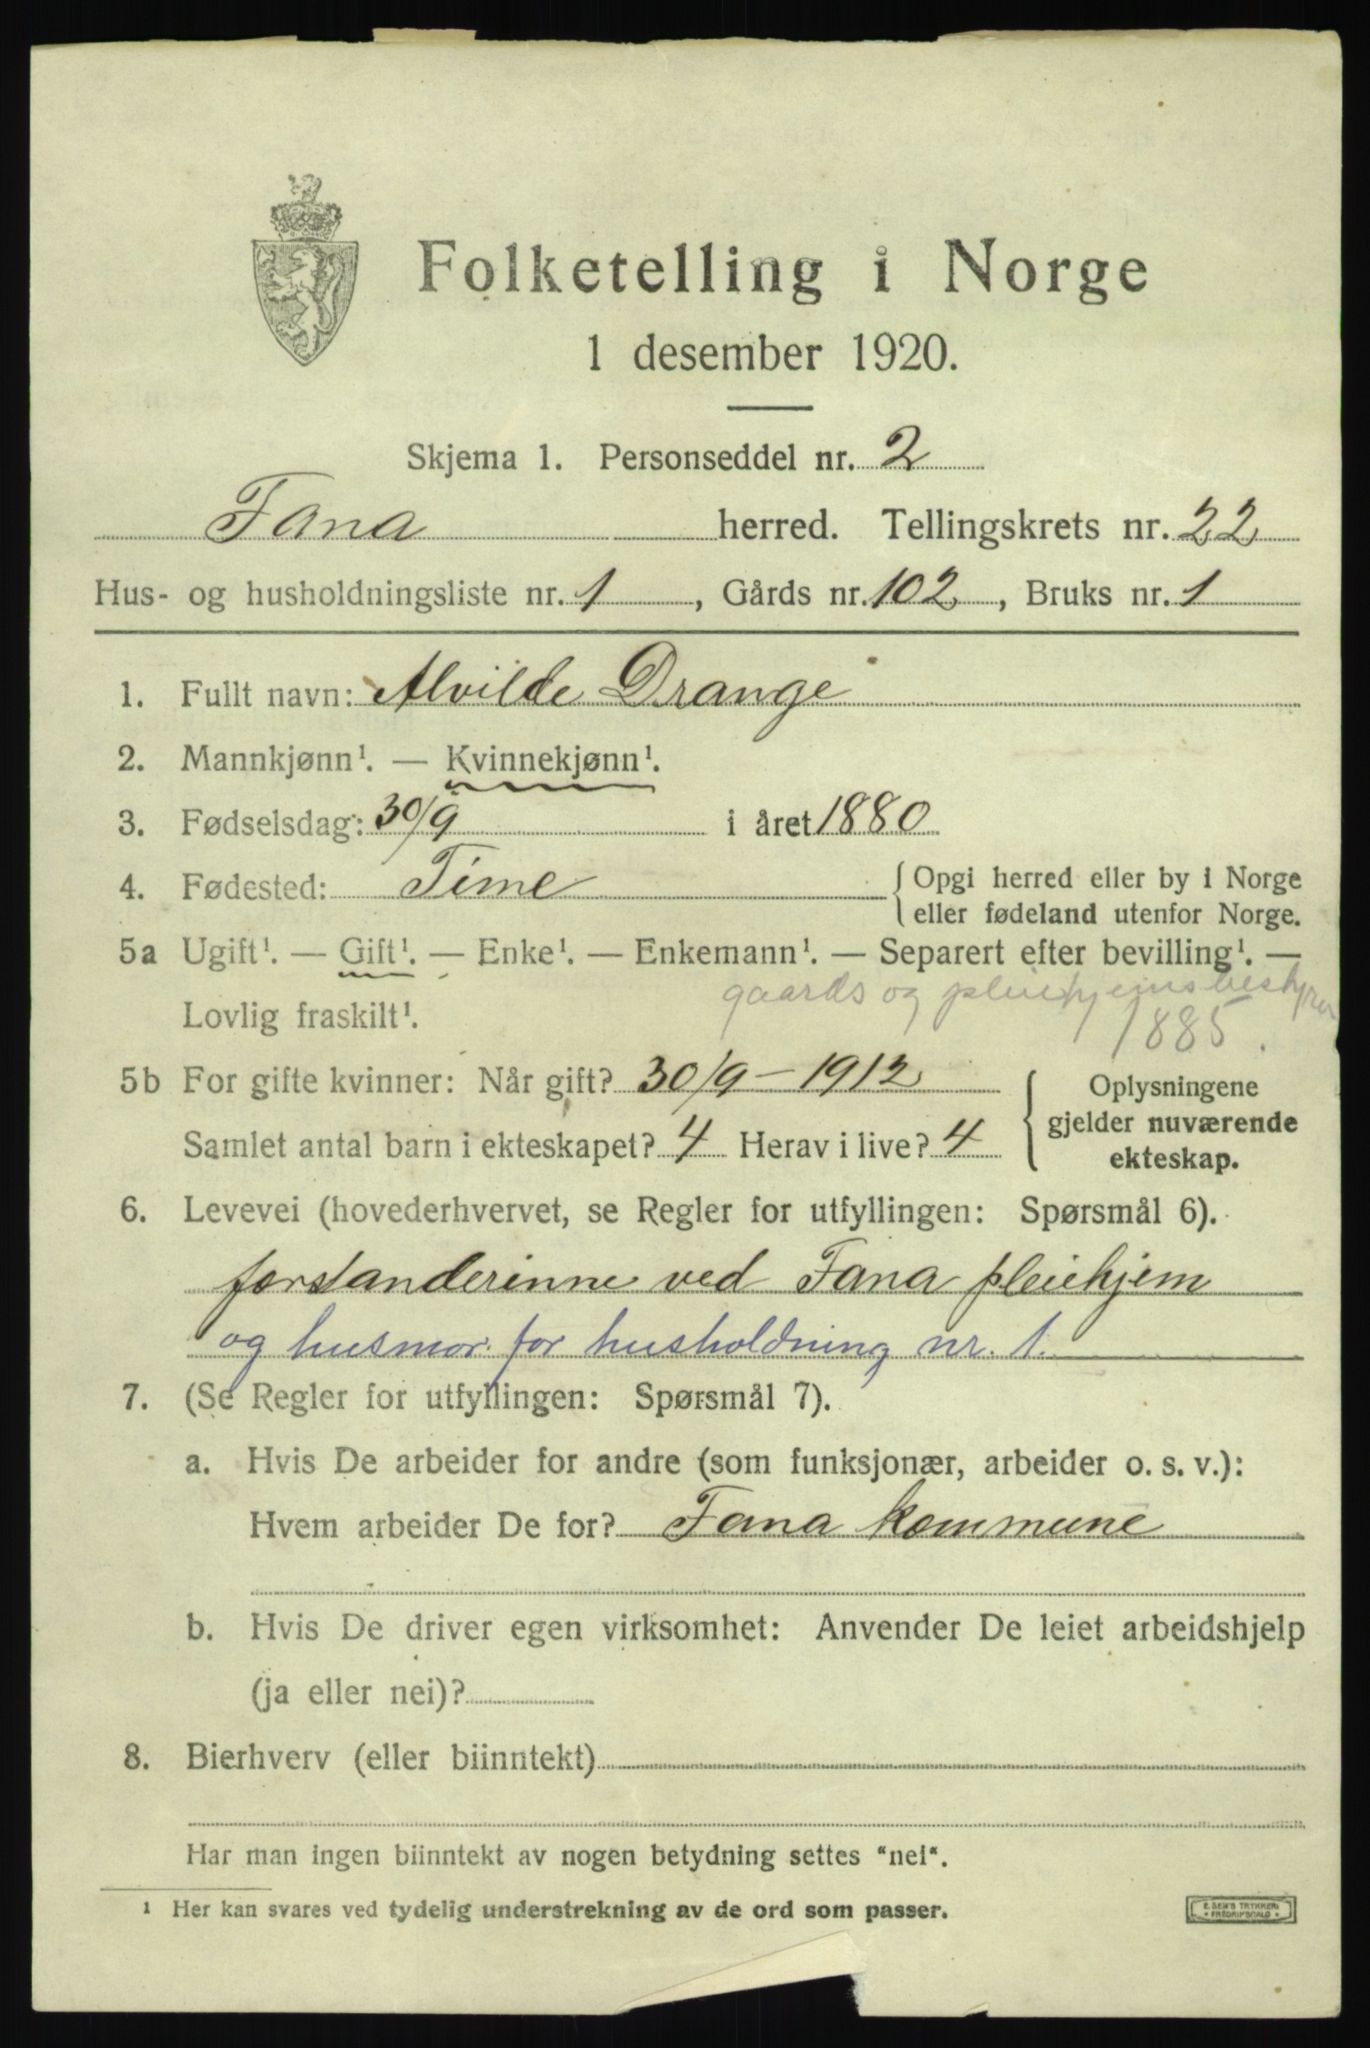 Folketelling i Norge
1 desember 1920.
Skjema 1. Personseddel nr. 2
Fana herred. Tellingskrets nr. 22
Hus- og husholdningsliste nr. 1, Gårds nr. 102, Bruks nr. 1
1. Fullt navn: Alvilde Drange
2. Mannkjønn¹. — Kvinnekjønn¹.
3. Fødselsdag: 30/9 i året 1880
4. Fødested: Time { Opgi herred eller by i Norge
eller fødeland utenfor Norge.
5a Ugift¹. — Gift¹. — Enke¹. — Enkemann¹. — Separert efter bevilling¹. —
gaards og pleiehjemsbestyrer
Lovlig fraskilt¹. 1885.
5b For gifte kvinner: Når gift? 30/9 – 1912
Samlet antal barn i ekteskapet? 4 Herav i live? 4
{ Oplysningene
gjelder nuværende
ekteskap.
6. Levevei (hovederhvervet, se Regler for utfyllingen: Spørsmål 6).
forstanderinne ved Fana pleiehjem
og husmor for husholdning nr. 1.
7. (Se Regler for utfyllingen: Spørsmål 7).
a. Hvis De arbeider for andre (som funksjonær, arbeider o. s. v.):
Hvem arbeider De for? Fana kommune
b. Hvis De driver egen virksomhet: Anvender De leiet arbeidshjelp
(ja eller nei)?
8. Bierhverv (eller biinntekt)
Har man ingen biinntekt av nogen betydning settes "nei".
¹ Her kan svares ved tydelig understrekning av de ord som passer.